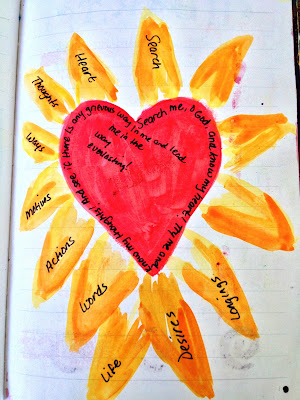 Search
Heart
Thoughts
Ways
Motives
Actions
Words
Life
Desires
Longings
Search me, O God, and know my heart; Try me and know my thoughts; And see if there is any grievous way in me and lead
me in the
way
everlasting!